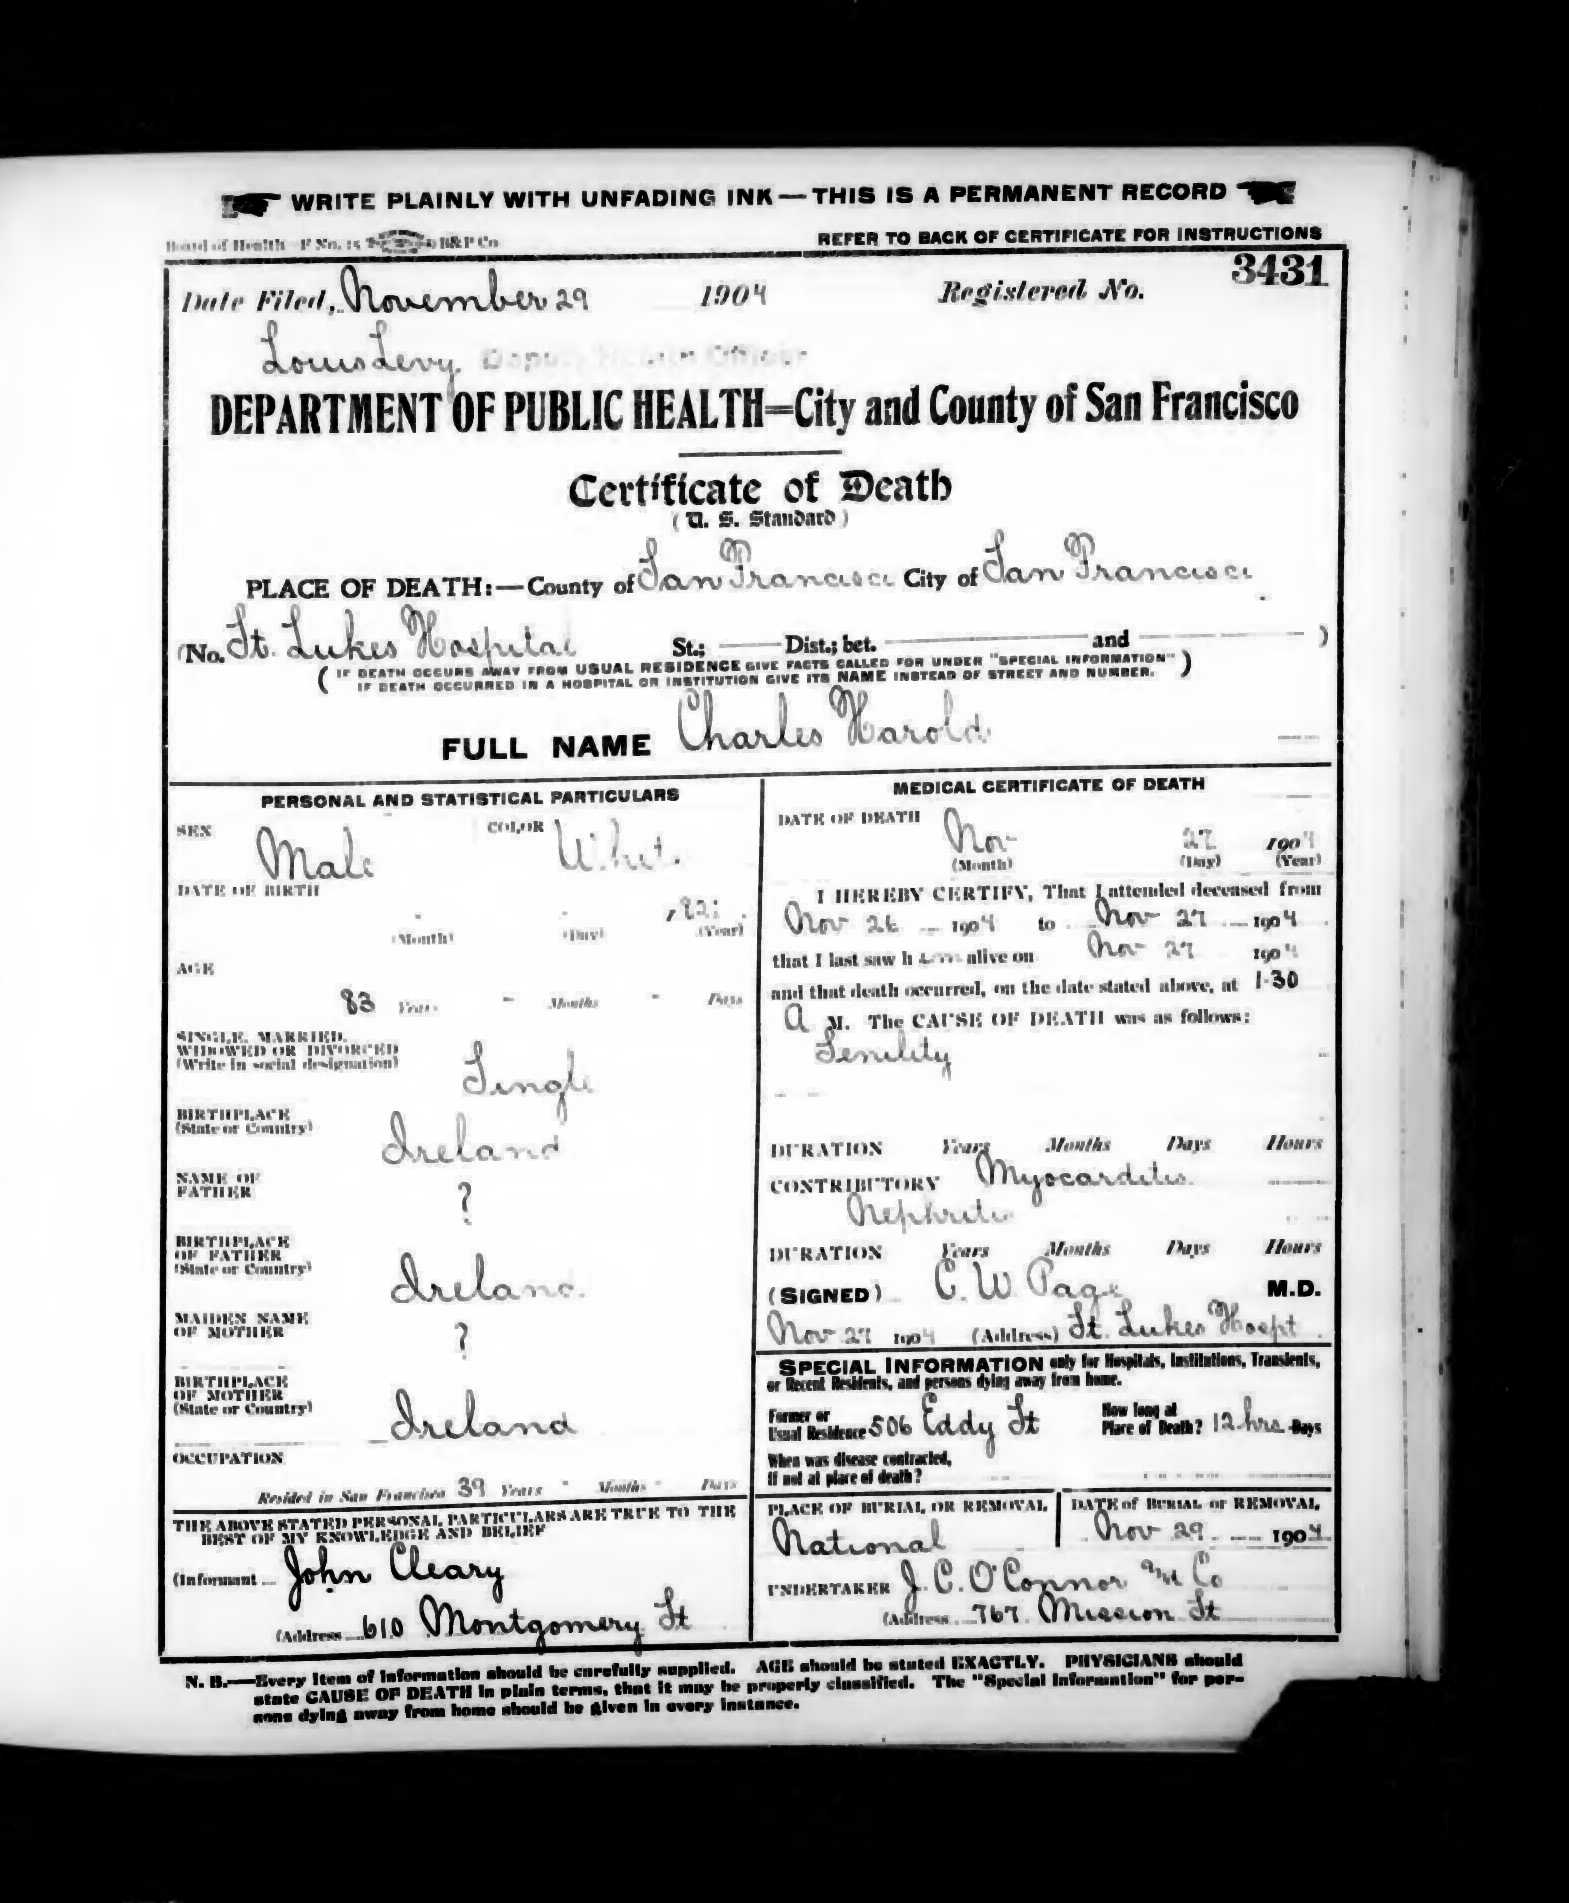 WRITE PLAINLY WITH UNFADING INK — THIS IS A PERMANENT RECORD
Board of Health F No. 15 B&P Co
REFER TO BACK OF CERTIFICATE FOR INSTRUCTIONS
Date Filed, November 29 1904 Registered No. 3431
Louis Levy Deputy Health Officer
DEPARTMENT OF PUBLIC HEALTH=City and County of San Francisco
Certificate of Death
(U. S. Standard)
PLACE OF DEATH:—County of San Francisco City of San Francisco
(No. St. Lukes Hospital St.; Dist.; bet. and )
(IF DEATH OCCURS AWAY FROM USUAL RESIDENCE GIVE FACTS CALLED FOR UNDER "SPECIAL INFORMATION"
IF DEATH OCCURRED IN A HOSPITAL OR INSTITUTION GIVE ITS NAME INSTEAD OF STREET AND NUMBER.)
FULL NAME Charles Harold
PERSONAL AND STATISTICAL PARTICULARS
SEX Male COLOR White
DATE OF BIRTH
1821
(Month) (Day) (Year)
AGE
83 Years - Months - Days
SINGLE, MARRIED,
WIDOWED OR DIVORCED
(Write in social designation)
Single
BIRTHPLACE
(State or Country)
Ireland
NAME OF
FATHER
?
BIRTHPLACE
OF FATHER
(State or Country)
Ireland
MAIDEN NAME
OF MOTHER
?
BIRTHPLACE
OF MOTHER
(State or Country)
Ireland
OCCUPATION
Resided in San Francisco 39 Years - Months - Days
THE ABOVE STATED PERSONAL PARTICULARS ARE TRUE TO THE
BEST OF MY KNOWLEDGE AND BELIEF
(Informant John Cleary
(Address 610 Montgomery St
MEDICAL CERTIFICATE OF DEATH
DATE OF DEATH Nov 27 1904
(Month) (Day) (Year)
I HEREBY CERTIFY, That I attended deceased from
Nov 26 1904 to Nov 27 1904
that I last saw h im alive on Nov 27 1904
and that death occurred, on the date stated above, at 1-30
A M. The CAUSE OF DEATH was as follows:
Senility
DURATION Years Months Days Hours
CONTRIBUTORY Myocarditis
Nephritis
DURATION Years Months Days Hours
(SIGNED) C. W. Page M.D.
Nov 27 1904 (Address) St. Lukes Hospt
SPECIAL INFORMATION only for Hospitals, Institutions, Transients,
or Recent Residents, and persons dying away from home.
Former or
Usual Residence 506 Eddy St
How long at
Place of Death? 12 hrs Days
When was disease contracted,
If not at place of death?
PLACE OF BURIAL OR REMOVAL
National
DATE of BURIAL or REMOVAL
Nov 29 1904
UNDERTAKER J. C. O'Connor and Co
(Address 767 Mission St
N. B.—Every item of information should be carefully supplied. AGE should be stated EXACTLY. PHYSICIANS should
state CAUSE OF DEATH in plain terms, that it may be properly classified. The "Special Information" for per-
sons dying away from home should be given in every instance.